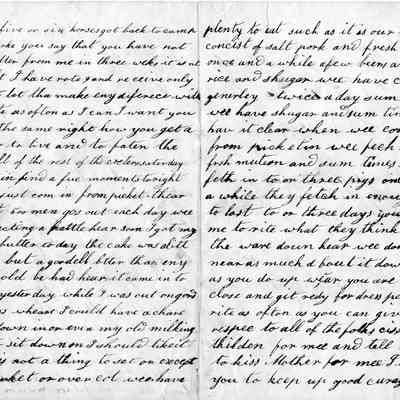 five or six horses got back to camp
you say that you have not
from me in three weks it is
I have rote and receive only
let tha make eny diference with
as often as I can I want you
the same right how you get a
to live and to faten the
of the rest of the saturday
find a few moments to right
just com in from picket
or men gos out each day wee
a prattle hear son I got my
butter to day the cake was all
but a good better than eny
be had hear it came in to
yesterday while I was out on
wheare I could have a chare
down in or even my old milking
sit down on I should like it
is not a thing to set on except
or over cot wee have
plenty to eat such as it is our
concist of salt pork and fresh
once and a while a few beens an
rice and shugar wee have
generley twice a day sum
wee have shugar and sum tim
hav it clear when wee com
from picket in wee fech
frsh mutton and sum times
feth in to or three pigs on
a while they fetch in enou
to last to or three days you
me to rite what they think
the ware doun hear wee don
near as much about it down
as you do up wear you are
close and get redy for dress pe
rite as often as you can give
respec to all of the folks ciss
thilden for mee and tell
to kiss Mother for mee I
you to keep up good cura